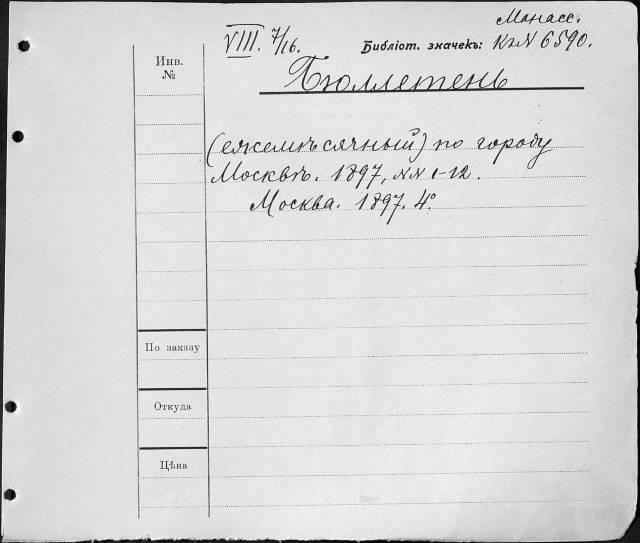 Манасс.
VIII. 7/16. Библіот. значекъ: Кг№ 6590.
Инв. №
Бюллетень
(ежемѣсячный) по городу
Москвѣ. 1897, №№ 1-12.
Москва. 1897. 4°.
По заказу
Откуда
Цѣна